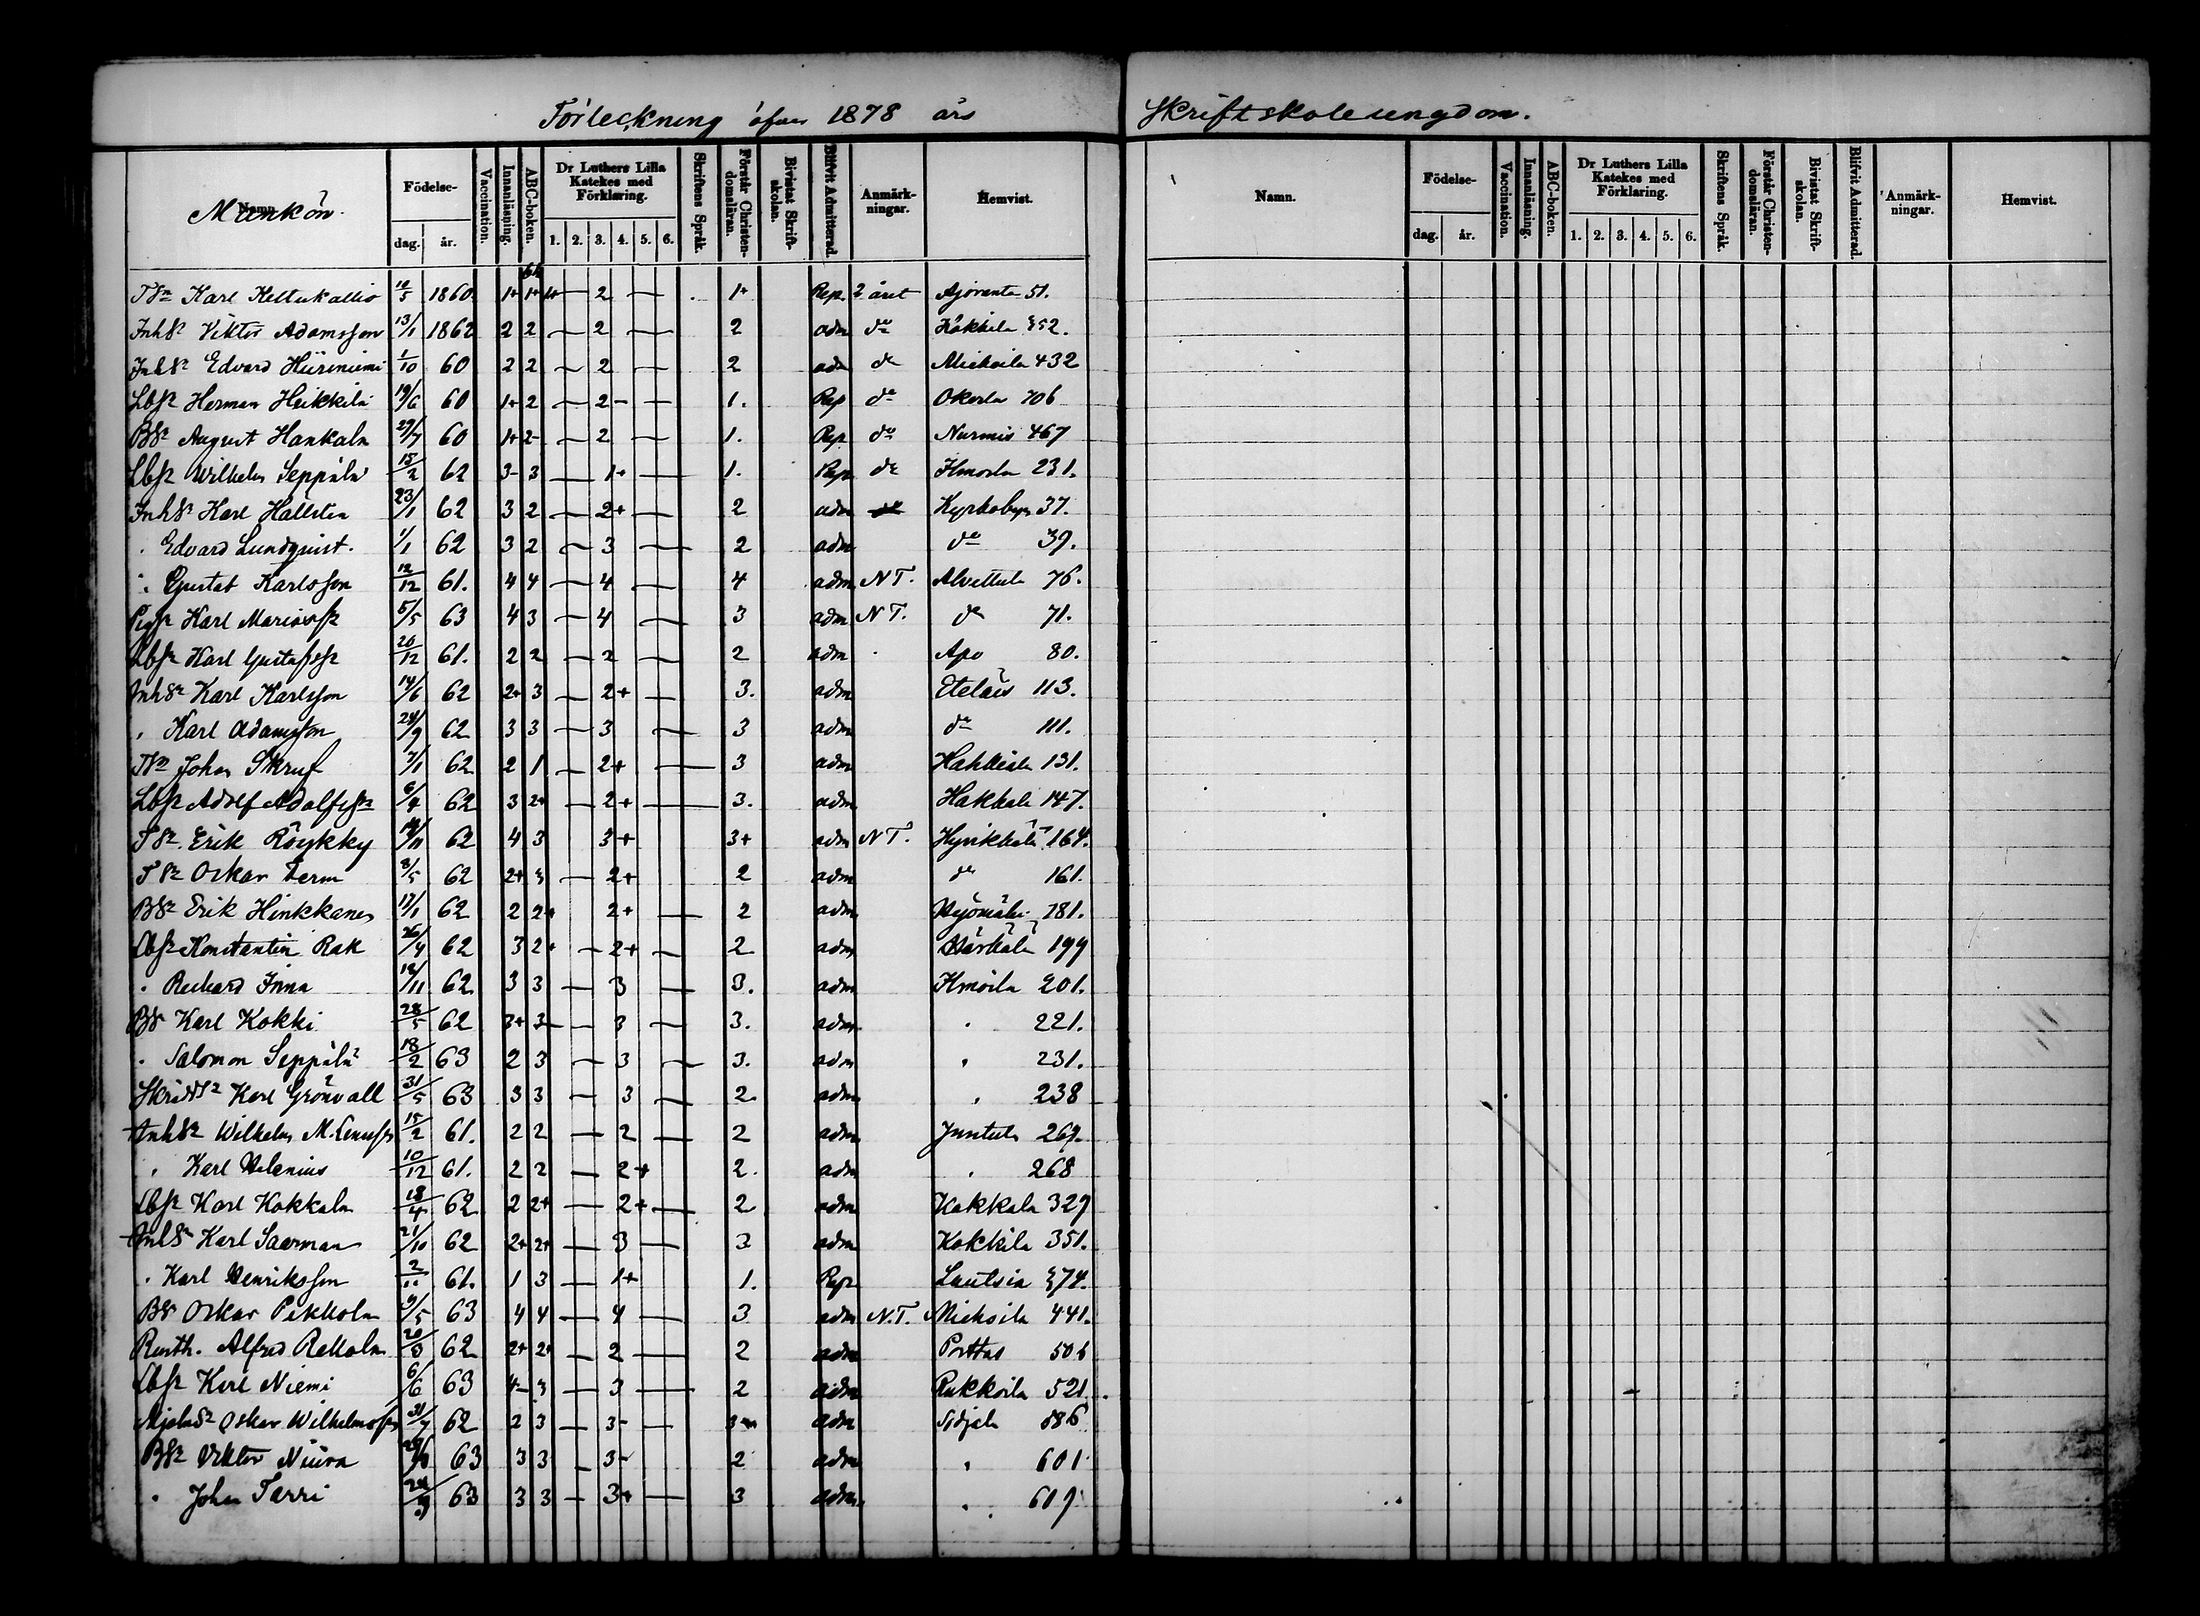 Förteckning öfver 1878 års Skriftskoleungdom.
Namn. Mankön. Födelse- dag. år. Vaccination. Innanläsning. ABC-boken. Dr Luthers Lilla Katekes med Förklaring. 1. 2. 3. 4. 5. 6. Skriftens Språk. Förstår Christendomsläran. Bivistat Skriftskolan. Blifvit Admitterad. Anmärkningar. Hemvist.
Namn. Födelse- dag. år. Vaccination. Innanläsning. ABC-boken. Dr Luthers Lilla Katekes med Förklaring. 1. 2. 3. 4. 5. 6. Skriftens Språk. Förstår Christendomsläran. Bivistat Skriftskolan. Blifvit Admitterad. Anmärkningar. Hemvist.
Karl 10/5 1860 1+ 1+ 1+ — 2 — 1+ Rep. 2 året 51.
Inhsn Viktor Adamsson 13/1 1862 2 2 — 2 — 2 adm do 352.
Inhsn Edvard Hiiriniemi 1/10 60 2 2 — 2 — 2 adm do 432
Lbsn Herman Heikkilä 19/6 60 1+ 2 — 2- — 1. Rep do 706
Bsn August Hankala 29/7 60 1+ 2- — 2 — 1. Rep. do Nurmis 467
Lbsn Wilhelm Seppälä 15/2 62 3- 3 — 1+ — 1. Rep do Ilmoila 231.
Inhsn Karl Hallsten 23/1 62 3 2 — 2+ — 2 adm Kyrkoby 37.
" Edvard Lundqvist. 1/1 62 3 2 — 3 — 2 adm do 39.
" Gustaf Karlsson 12/12 61. 4 4 — 4 — 4 adm N T. Alvettula 76.
Karl 5/5 63 4 3 — 4 — 3 adm N T. do 71.
Lbsn Karl Gustafssn 20/12 61. 2 2 — 2 — 2 adm Apo 80.
Inhsn Karl Karlsson 14/6 62 2+ 3 — 2+ — 3. adm Eteläis 113.
" Karl Adamsson 24/9 62 3 3 — 3 — 3 adm do 111.
Tsn Johan Skruf 7/1 62 2 1 — 2+ — 3 adm 131.
Lbsn Adolf Adolfssn 6/4 62 3 2+ — 2+ — 3. adm Hakkala 147.
Tsn Erik Röykky 62 4 3 3+ 3+ adm N T. Hyrikkälä 164.
Tsn Oskar Term 8/5 62 2+ 3 — 2+ 2 adm do 161.
Bsn Erik Hinkkanen 17/1 62 2 2+ 2+ — 2 adm 181.
Lbsn Konstantin Rak 26/4 62 3 2+ — 2+ — 2 adm 199
" Richard Inna 18/11 62 3 3 — 3 — 3. adm Ilmoila 201.
Bsn Karl Kokki 28/5 62 3+ 3- — 3 — 3. adm " 221.
" Salomon Seppälä 18/2 63 2 3 — 3 — 3. adm " 231.
Karl Grönvall 31/5 63 3 3 — 3 — 2 adm " 238
Inhsn Wilhelm 15/2 61. 2 2 — 2 — 2 adm Juntula 269.
" Karl Helenius 10/12 61. 2 2 — 2+ 2. adm " 268
Lbsn Karl Kokkala 18/4 62 2 2+ — 2+ — 2 adm Kokkala 329
Inhsn Karl Saarman 21/10 62 2+ 2+ — 3 — 3 adm Kokkila 351.
" Karl Henriksson 2/11 61. 1 3 — 1+ 1. Rep Lautsia 374.
Bsn Oskar Pekkola 9/5 63 4 4 — 4 — 3 adm N.T. 441.
Alfred Rekkola 20/3 62 2+ 2+ — 2 — 2 adm Porttas 506
Lbsn Karl Niemi 6/6 63 4- 3 — 3 — 2 adm Rukkoila 521.
Oskar Wilhelmssn 31/7 62 2 3 — 3- — adm 586
Bsn Viktor Niura 63 3 3 — 3- 2 adm " 601
" Johan Tarri 24/9 63 3 3 — 3+ — 3 adm " 609